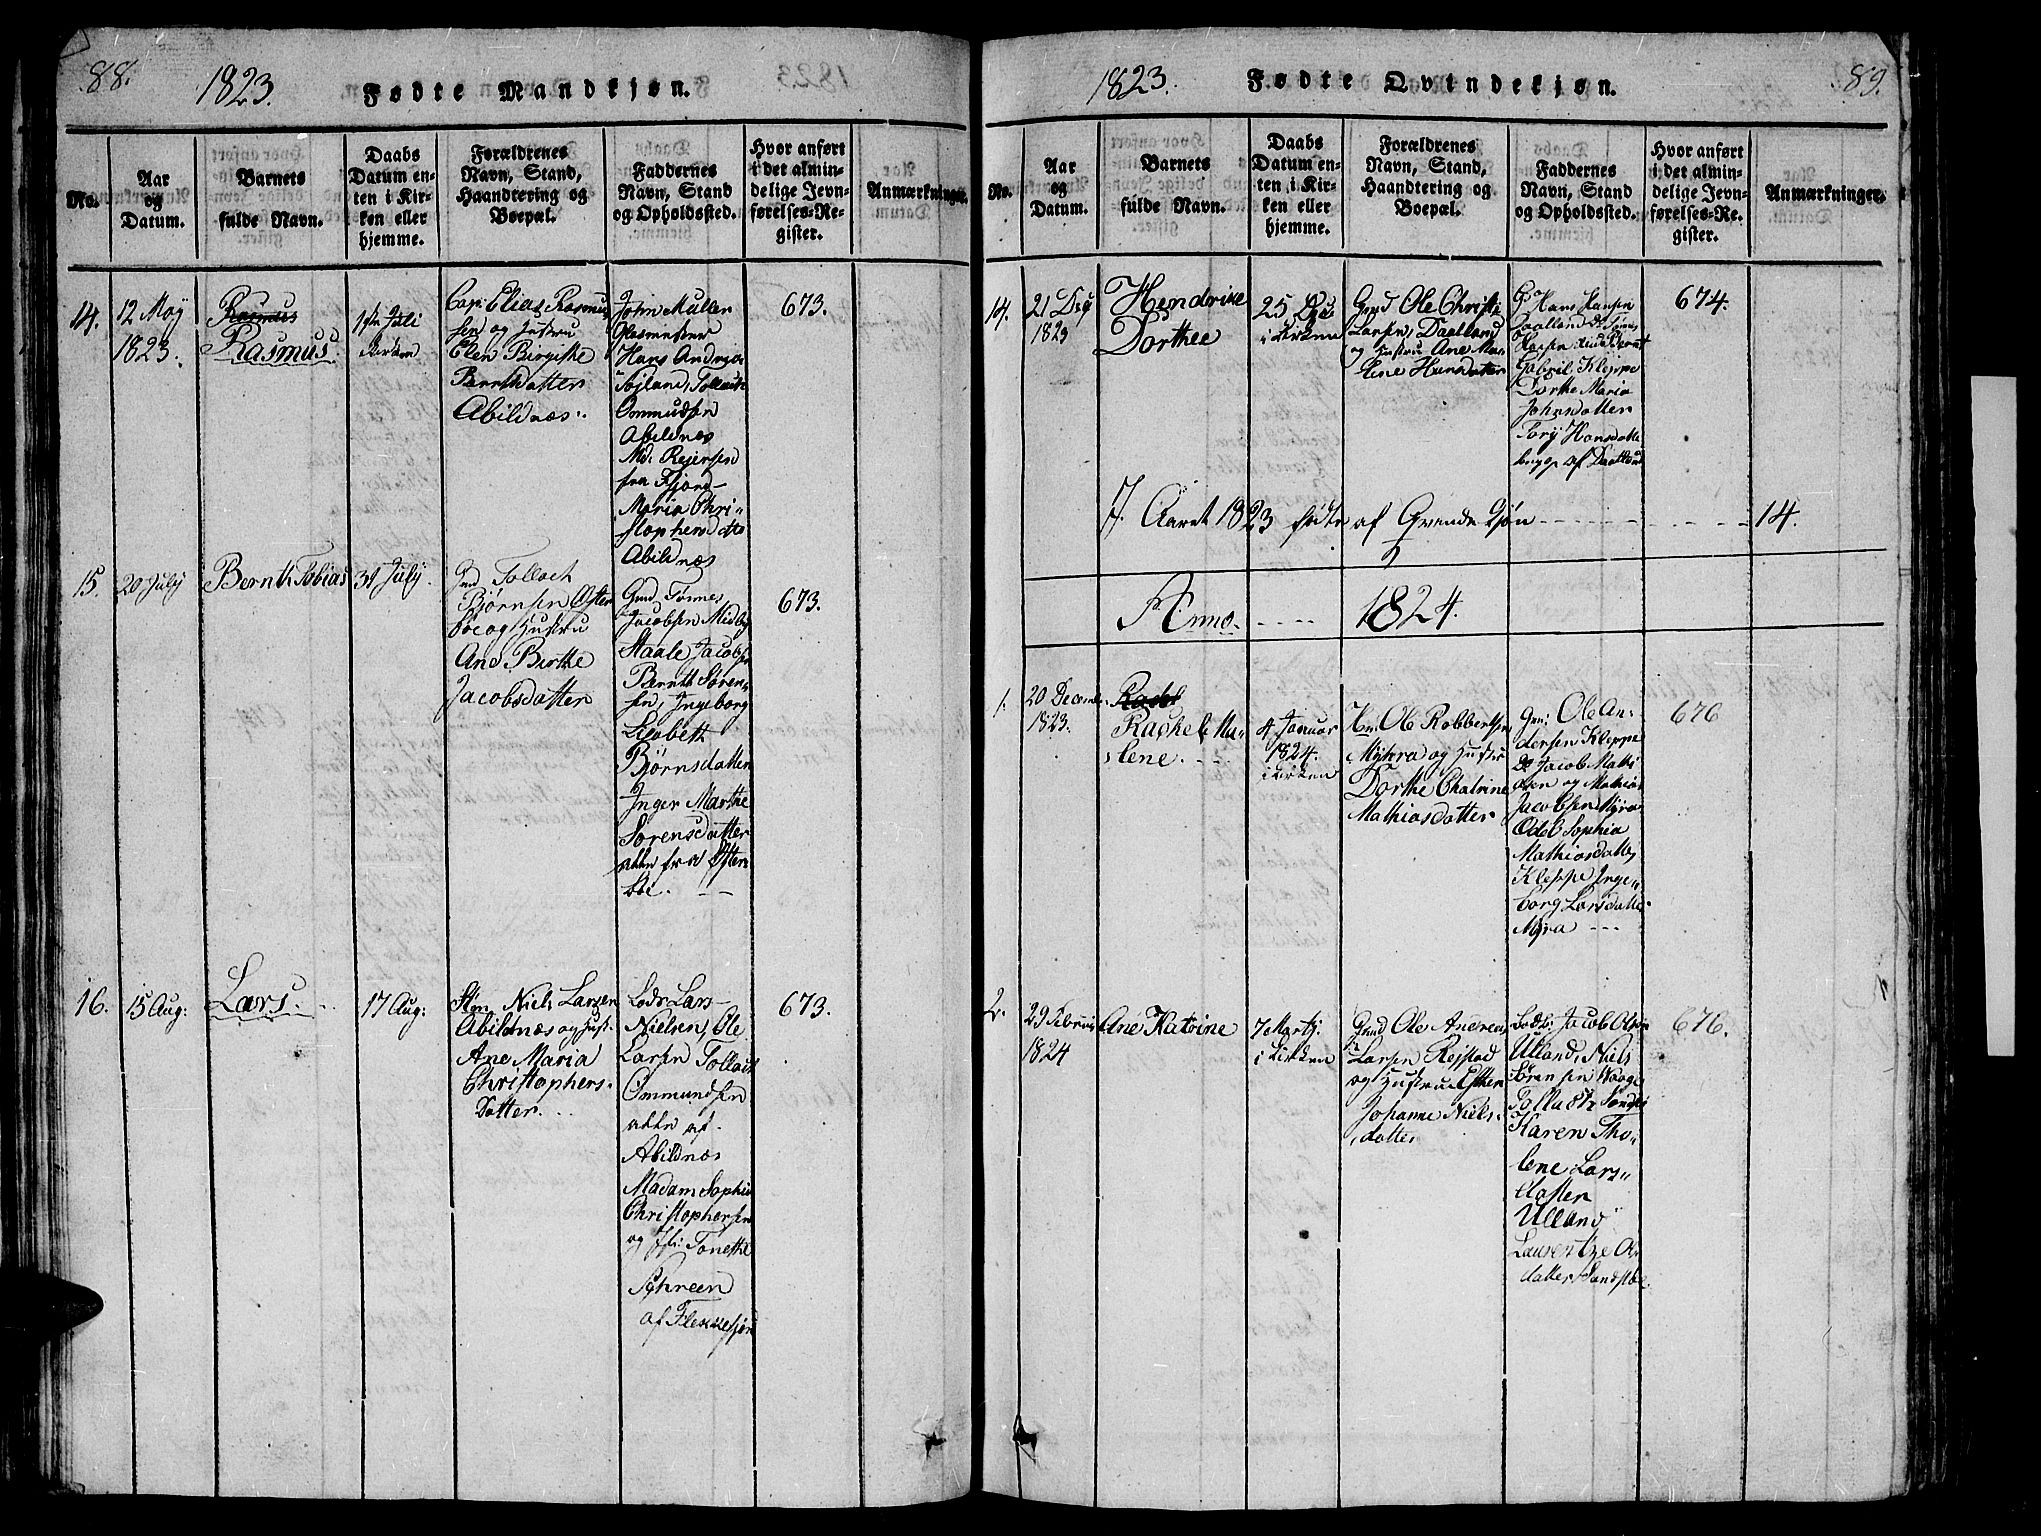 88.
1823.
Fødte Mandkjøn.
No.
Aar
og
Datum.
Barnets
fulde Navn.
Daabs
Datum en-
ten i Kir-
ken eller
hjemme.
Forældrenes
Navn, Stand,
Haandtering og
Boepæl.
Faddernes
Navn, Stand
og Opholdssted.
Hvor anført
i det almin-
delige Jevn-
førelses-Re-
gister.
Anmærkninger.
14.
12 May
1823.
Rasmus
Rasmus
1ste Juli
Elias Rasmus
sen og Hustru
Elen Birgitte
Berntsdatter
Abildnæs.
John Müller
Glasmester
Hans Andreas
Tollach
Ommundsen
Abildnæs
Md. Rejersen
fra Fjord
Maria Chri-
stophersdatter
Abildnæs
673.
15.
20 July
Bernth Tobias
31 July.
Gmd Tollach
Bjørnsen Øster
böe og Hustru
Ane Birthe
Jacobsdatter
Gmd Tønnes
Jacobsen Midby
Staale Jacobsen
Bernth Søren-
sen, Ingeborg
Lisabeth
Bjørnsdatter
Inger Marthe
Sørensdatter
alle fra Øster-
böe.
673.
16.
15 Aug:
Lars.
17 Aug:
Niels Larsen
Abildnæs og Hust.
Ane Maria
Christophers-
datter.
Lods Lars
Nielsen, Ole
Larsen Tollach
Ommundsen
alle af
Abildnæs
Madam Sophie
Christophersen
og Jfr: Tonette
Schreen
af Flekkefjord
673.
1823.
Fødte Qvindekjøn.
89.
No.
Aar
og
Datum.
Barnets
fulde Navn.
Daabs
Datum en-
ten i Kir-
ken eller
hjemme.
Forældrenes
Navn, Stand,
Haandtering og
Boepæl.
Faddernes
Navn, Stand
og Opholdssted.
Hvor anført
i det almin-
delige Jevn-
førelses-Re-
gister.
Anmærkninger.
14.
21 Dec
1823
Hendrike
Dorthee
25 Dec
i Kirken
Gmd Ole Christi
Larsen, Daatland
og Hustru Ane Ma-
lene Hansdatter
Hans Hansen
Daatland
Gabriel Kleppe
Dorthe Maria
Johnsdatter
Tory Hansdatter
begge af Daatland
674.
I Aaret 1823 fødte af Qvindekjøn
14.
Anno
1824.
1.
20 Decemb.
1823.
Rachel
Rachel Ma-
lene.
4 Januar
1824.
i Kirken
Ole Robbertsen
Myhra og Hustru
Dorthe Chatrine
Mathiasdatter
Gm: Ole An-
dersen Kleppe
Do Jacob Mathi
asen og Mathias
Jacobsen Myra
Odel Sophia
Mathiasdatter
Kleppe Inge-
borg Larsdatter
Myra
676
2.
29 Februar
1824
Ane Katrine
7 Marty
i Kirken
Gmd Ole Andreas
Larsen Rejstad
og Hustrue Esther
Johanne Niels-
datter
Jacob Olsen
Ulland, Niels
Sørensen Waage
Tollach
Karen Tho-
lene Lars-
datter
Ulland
Laurentze Ols-
datter
676.